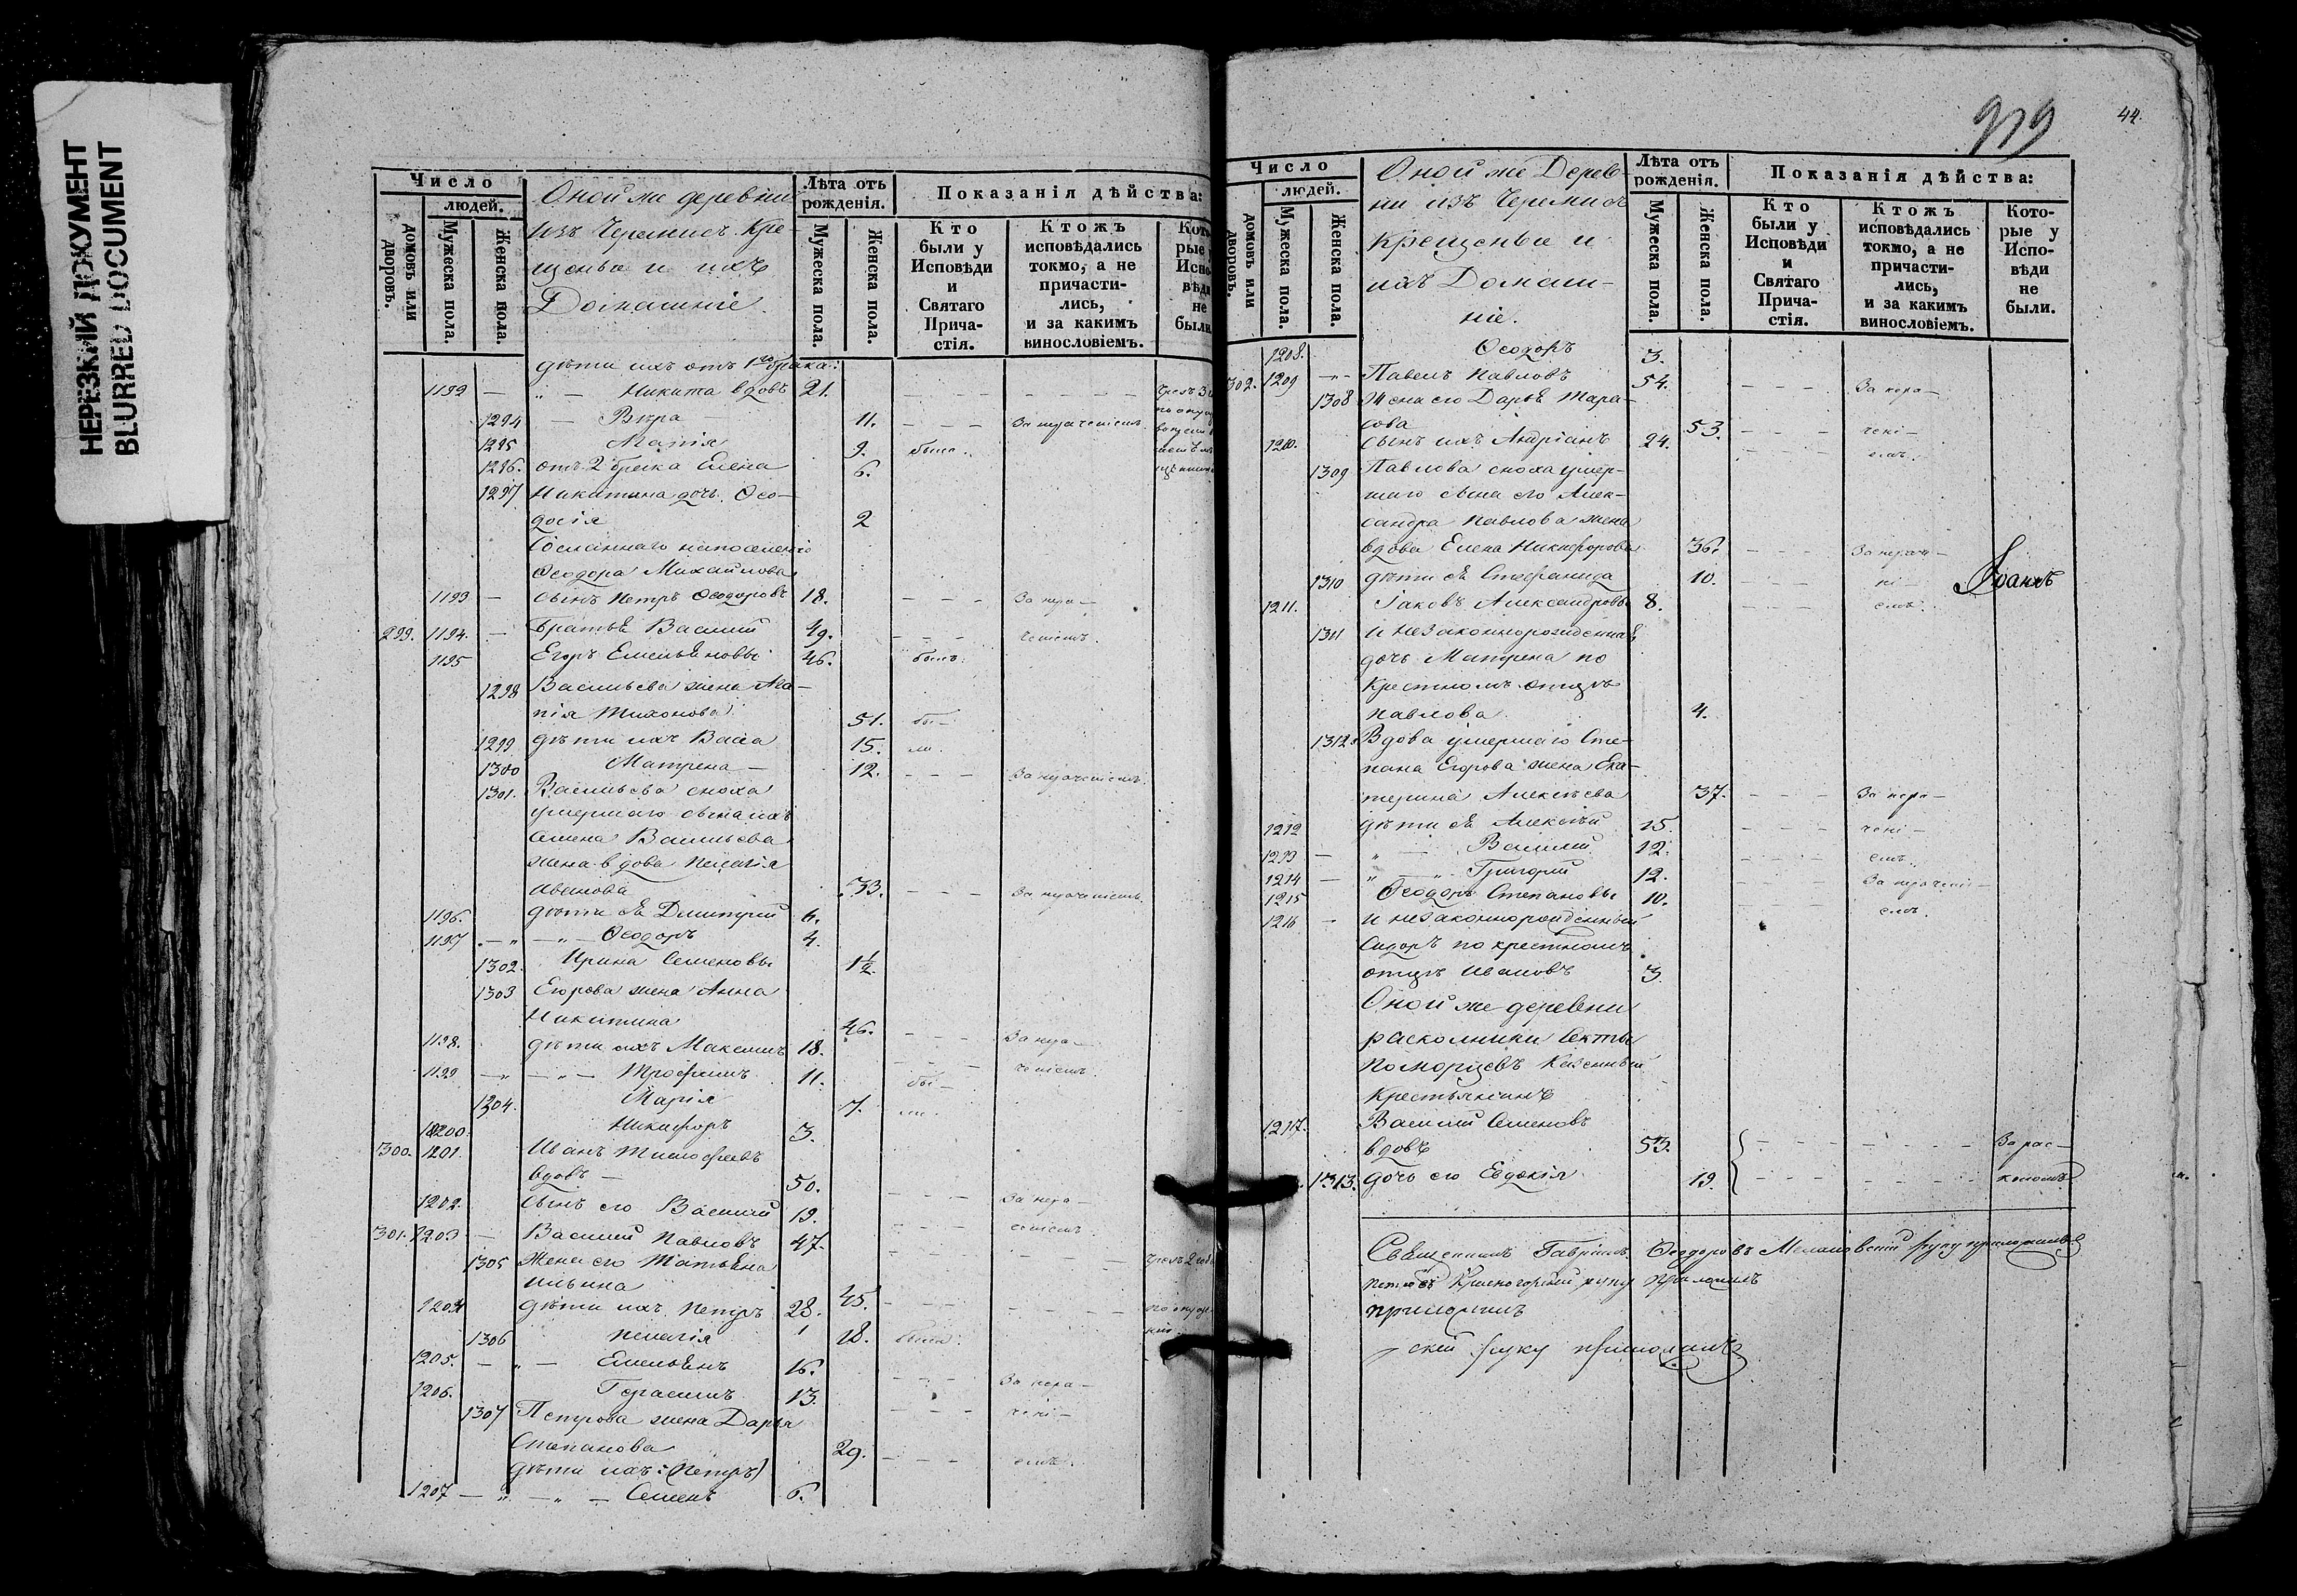 НЕРЕЗКИЙ ДОКУМЕНТ
BLURRED DOCUMENT
Число
людей.
домовъ или дворовъ.
Мужеска пола.
Женска пола.
Оной же деревни
изъ Черемисъ Кре-
щеные и ихъ
Домашніе.
Лѣта отъ рожденія.
Мужеска пола.
Женска пола.
Показанія дѣйства:
Кто были у Исповѣди и Святаго Прича-стія.
Ктожъ исповѣдались токмо, а не причасти-лись, и за какимъ винословіемъ.
не были
дѣти ихъ отъ 1го брака:
1192 — „ — Никита вдовъ 21.
1294 — Вѣра 11. За нерачениемъ.
1295 Марія 9. была.
1296. отъ 2 брака Елена 6.
1297 Никитина дочь Ѳео-
досія 2
Ѳеодора Михайлова
1193 — сынъ Петръ Ѳеодоровъ 18. За нера-
299. 1194. — Братья Василий 49. ченіемъ.
1195 Егоръ Емельяновы 46. былъ.
1298 Васильева жена Ма-
рія Тихонова 51. бы-
1299 дѣти ихъ Васса 15. ли.
1300 Матрена — 12. За нераченіемъ.
1301. Васильева сноха
умершаго сына ихъ
Семена Васильева
жена вдова Пелагія
Иванова 33. За нераченіемъ.
1196. дѣти ея Димитрий 6.
1197 — „ — „ — Ѳеодоръ 4.
1302. Ирина Семеновы 1½.
1303 Егорова жена Анна
Никитина 46.
1198. дѣти ихъ Максимъ 18. За нера-
1199 — „ — „ — Трофимъ 11. бы- ченіемъ.
1304. Марія 7. ли.
1200. Никифоръ 3.
300. 1201. Иванъ Тимофеевъ
вдовъ — 50.
1202. сынъ его Василий 19. За нера-
301. 1203 — Василий Павловъ 47. ченіемъ
1305 Жена его Татьяна
Ильина 45.
1204 дѣти ихъ Петръ 28.
1306 Пелагія 18. была.
1205. — „ — Емельянъ 16.
1206. Герасимъ 13. За нера-
1307 Петрова жена Дарья чені-
Степанова 29.
дѣти ихъ: (Петръ) емъ.
1207 — „ — „ — Семенъ 6.
979
44.
Число
людей.
домовъ или дворовъ.
Мужеска пола.
Женска пола.
Оной же Дерев-
ни изъ Черемисъ
крещеные и
ихъ Домаш-
ніе.
Лѣта отъ рожденія.
Мужеска пола.
Женска пола.
Показанія дѣйства:
Кто были у Исповѣди и Святаго Прича-стія.
Ктожъ исповѣдались токмо, а не причасти-лись, и за какимъ винословіемъ.
Кото-рые у Испо-вѣди не были.
1208. Ѳеодоръ 3.
302. 1209 — Павелъ Павловъ 54. За нера-
1308 Жена его Дарья Тара-
сова 53. чені-
1210. сынъ ихъ Андріанъ 24. емъ.
1309 Павлова сноха умер-
шаго сына его Алек-
сандра Павлова жена
вдова Елена Никифорова 36. За нерач-
1310 дѣти ея Стефанида 10. ні-
Іоаннъ
1211. Іаковъ Александровы 8. емъ.
1311 и незаконнорожденная
дочь Матрена по
Крестномъ отцѣ
Павлова 4.
1312. Вдова умершаго Сте-
пана Егорова жена Ека-
терина Алексѣева 37. За нера-
1212 дѣти ея Алексѣй 15. чені-
1213 — „ — Василий 12. емъ.
1214 — „ — „ Григорий 12. За нерачені-
1215 Ѳеодоръ Степановы 10. емъ.
1216 — и незаконнорожденный
Сидоръ по крестномъ
отцѣ Ивановъ 3
Оной же деревни
раскольники секты
Поморцевъ Казенный
Крестьянинъ
1217. Василий Семеновъ
вдовъ 53. За рас-
1313. дочь его Евдокія 19. коломъ
Священникъ Гавріилъ Ѳеодоровъ руку приложилъ
Красногорский руку приложилъ
приложилъ
ский руку приложилъ